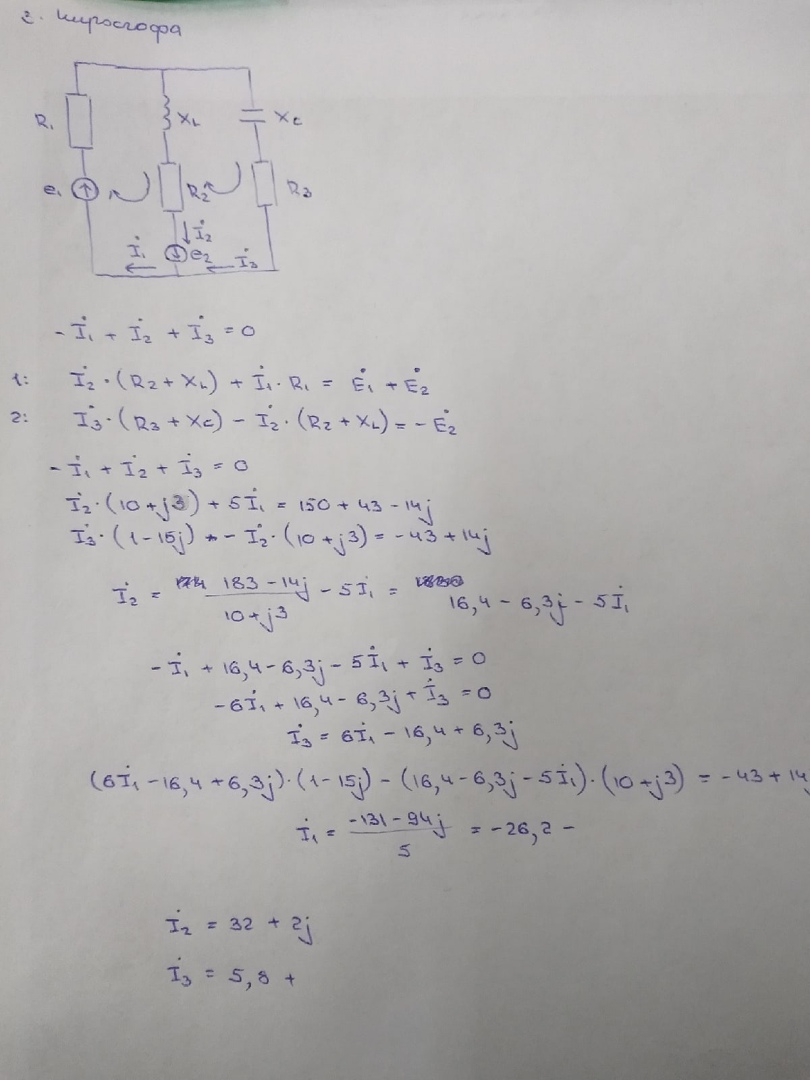 2. Кирхгофа
R₁ XL XC
e₁ R₂ R₃
İ₂
İ₁ e₂ İ₃
- İ₁ + İ₂ + İ₃ = 0
1: İ₂ · (R₂ + XL) + İ₁ · R₁ = Ė₁ + Ė₂
2: İ₃ · (R₃ + XC) - İ₂ · (R₂ + XL) = - Ė₂
- İ₁ + İ₂ + İ₃ = 0
İ₂ · (10 + j3) + 5İ₁ = 150 + 43 - 14j
İ₃ · (1 - 15j) + - İ₂ · (10 + j3) = -43 + 14j
İ₂ = 183 - 14j / 10 + j3 - 5İ₁ = 16,4 - 6,3j - 5İ₁
- İ₁ + 16,4 - 6,3j - 5İ₁ + İ₃ = 0
- 6İ₁ + 16,4 - 6,3j + İ₃ = 0
İ₃ = 6İ₁ - 16,4 + 6,3j
(6İ₁ - 16,4 + 6,3j) · (1 - 15j) - (16,4 - 6,3j - 5İ₁) · (10 + j3) = -43 + 14j
İ₁ = -131 - 94j / 5 = -26,2 -
İ₂ = 32 + 2j
İ₃ = 5,8 +